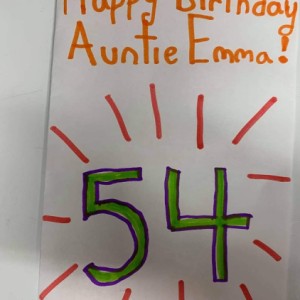 Happy Birthday
Auntie Emma!
54